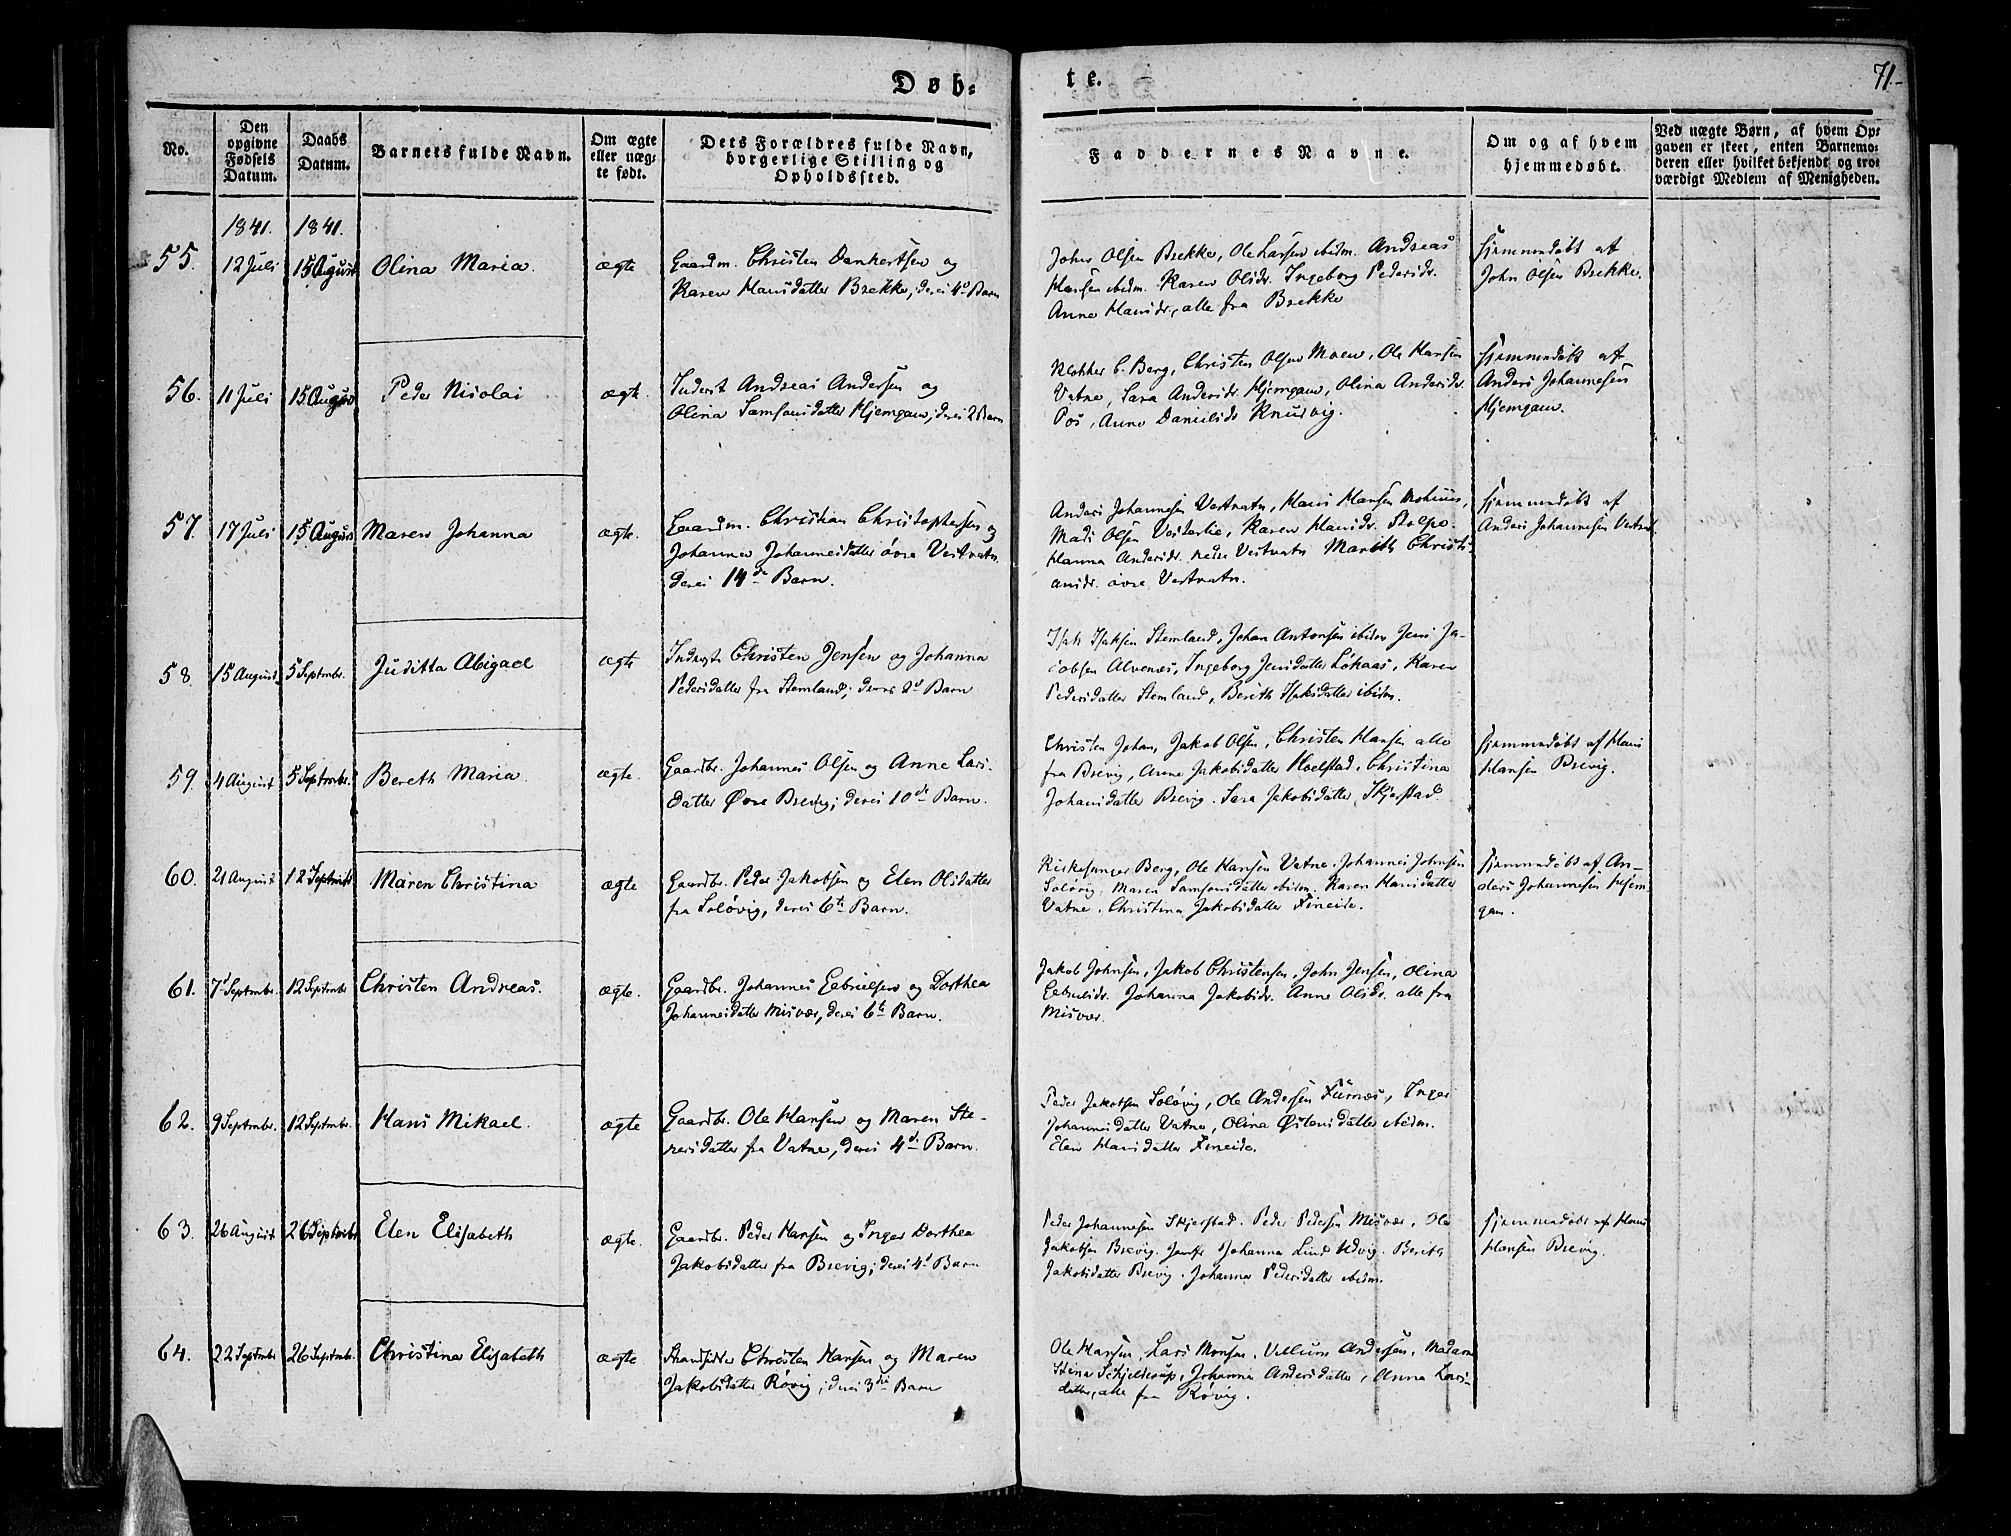 Døb=
te.
71.-
No.
Den opgivne Fødsels Datum.
Daabs Datum.
Barnets fulde Navn.
Om ægte eller næg= te født.
Dets Forældres fulde Navn, borgerlige Stilling og Opholdssted.
Faddernes Navne.
Om og af hvem hjemmedøbt.
Ved uægte Børn, af hvem Op=
gaven er skeet, enten Barnemo=
deren eller hvilket bekjendt og tro=
værdigt Medlem af Menigheden.
1841. 1841.
55. 12 Juli 15 August Olina Maria. ægte Gaardm. Christen Dankertsen og
Karen Hansdatter Brekke, deres 4d Barn
John Olsen Brekke, Ole Larsen ibidm. Andreas
Hansen ibidm. Karen Olsdr. Ingeborg Pedersdr.
Anne Hansdr., alle fra Brekke
hjemmedøbt af
John Olsen Brekke.
56. 11 Juli 15 August Peder Nicolai ægte. Inderst Andreas Andersen og
Olina Samsonsdatter Hjemgam, deres 2 Barn
Klokker C. Berg, Christen Olsen Moen, Ole Hansen
Vatne, Sara Andersdr. Hjemgam, Olina Andersdr.
Pos, Anne Danielsds Knudvig.
hjemmedøbt af
Anders Johannesen
Hjemgam.
57. 17 Juli 15 August Maren Johanna ægte. Gaardm. Christian Christophersen og
Johanna Johannesdatter øvre Vestvatn
deres 14de Barn.
Anders Johannesen Vestvatn, Hans Hansen
Mads Olsen Vesterlie, Karen Hansdr. Stolpe.
Hanna Andersdr. nedre Vestvatn Mareth Christi
ansdr. øvre Vestvatn.
hjemmedøbt af
Anders Johannesen Vestvat.
58. 15 August 5 Septmbr. Juditta Abigael ægte Inderst Christen Jensen og Johanna
Pedersdatter fra Stemland; deres 2d Barn
Isak Isaksen Stemland, Johan Antonsen ibidm Jens Ja-
cobsen Alvenæs, Ingeborg Jensdatter Løkaas, Karen
Pedersdatter Stemland, Berith Isaksdatter ibidm.
59. 4 August 5 Septmbr. Bereth Maria ægte. Gaardbr. Johannes Olsen og Anne Lars-
datter Øvre Brevig; deres 10de Barn.
Christen Johan, Jakob Olsen, Christen Hansen alle
fra Brevig, Anne Jakobsdatter Hoelstad, Christina
Johansdatter Brevig. Sara Jakobsdatter, Skjerstad.
hjemmedøbt af Hans
Hansen Brevig.
60. 21 August 12 Septmbr Maren Christina ægte Gaardbr. Peder Jakobsen og Elen Olsdatter
fra Soløvig, deres 6te Barn.
Kirkesanger Berg, Ole Hansen Vatne, Johannes Johnsen
Soløvig. Maren Samsonsdatter ibidm. Karen Hansdatter
Vatne. Christina Jakobsdatter Fineide.
hjemmedøbt af An-
ders Johannesen Hjem
gam.
61. 7 Septmbr. 12 Septmbr Christen Andreas. ægte. Gaardbr. Johannes Gabrielsen og Dorthea
Johannesdatter Misvær, deres 6te Barn.
Jakob Johnsen, Jakob Christensen, John Jensen, Olina
Gabrielsdr. Johanna Jakobsdr. Anne Olsdr. alle fra
Misvær.
62. 9 Septmbr. 12 Septmbr. Hans Mikael. ægte Gaardbr. Ole Hansen og Maren Ste-
nersdatter fra Vatne, deres 4de Barn.
Peder Jakobsen Soløvig, Ole Andersen Furnæs, Inger
Johannesdatter Vatne, Olina Østensdatter ibidm.
Elen Hansdatter Fineide.
63. 26 August 26 Septmbr Elen Elisabeth ægte. Gaardbr. Peder Hansen og Inger Dorthea
Jakobsdatter fra Brevig; deres 4d Barn
Peder Johannesen Skjerstad. Peder Pedersen Misvær, Ole
Jakobsen Brevig. Jomfr Johanna Lind Udvig. Berith
Jakobsdatter Brevig. Johanna Pedersdatter ibidm.
hjemmedøbt af Hans
Hansen Brevig.
64. 22 Septmbr 26 Septmbr. Christina Elisabeth ægte Strandsidder Christen Hansen og Maren
Jakobsdatter Røvig; deres 3die Barn
Ole Hansen, Lars Monsen, Vellum Andersen, Madame
Stina Schjelderup, Johanna Andersdatter, Anna Lars-
datter, alle fra Røvig.